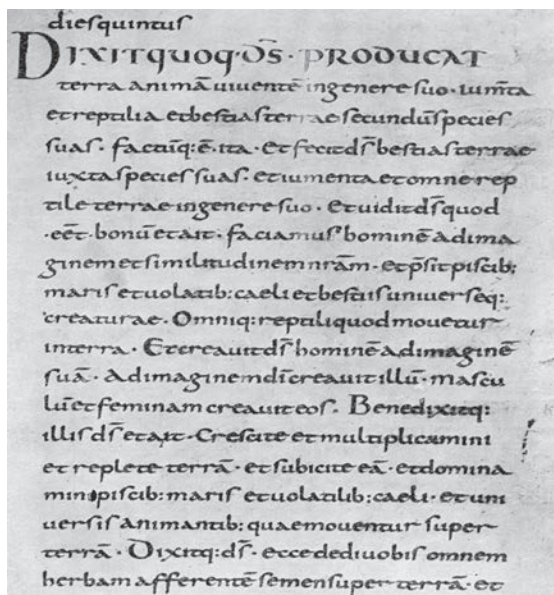 dies quintus
DIXITQUOQ·DS̄· PRODUCAT
terra animā uiuentē ingenere suo · ium̄ta
et reptilia etbestias terrae secundū species
suas · factūq: ē· ita · Et fecit ds̄ bestias terrae
iuxta species suas · et iumenta et omne rep
tile terrae ingenere suo · Et uidit ds̄ quod
·eēt· bonū et ait · faciamus hominē adima
ginem et similitudinem nr̄am · et p̄sit piscib:
maris et uolatib: caeli et bestiis uniuerseq:
creaturae · Omniq: reptili quod mouetur
interra · Et creauit ds̄ hominē adimaginē
suā · Adimaginem dī creauit illū · mascu
lū et feminam creauit eos · Benedixitq:
illis ds̄ et ait · Crescite et multiplicamini
et replete terrā · et subicite eā · et domina
mini piscib: maris et uolatilib: caeli · et uni
uersis animantib: quae mouentur super
terrā · Dixitq: ds̄ · ecce dedi uobis omnem
herbam afferentē semen super terrā · et